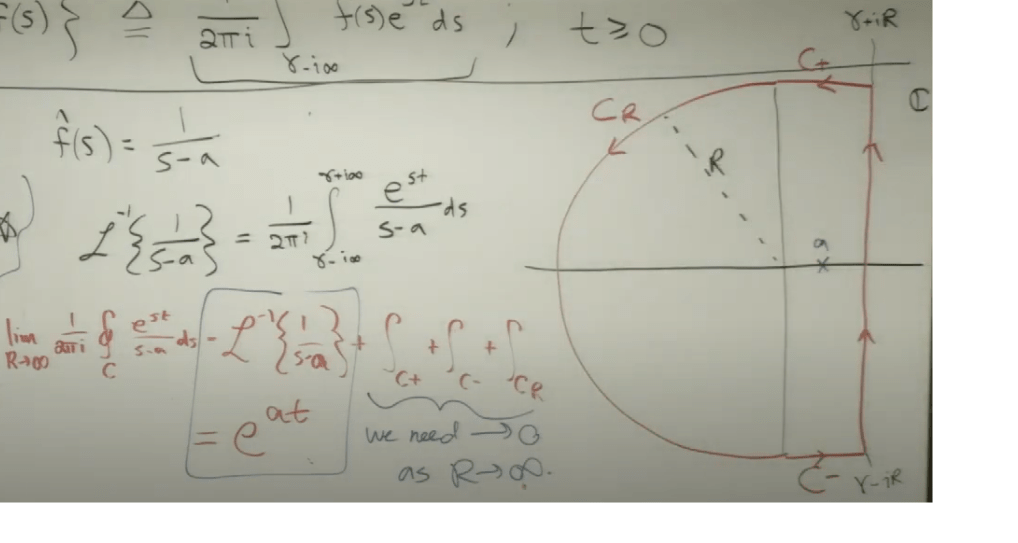 f(s)} ≜ 1/2πi ∫_{γ-i∞} f(s)e^{st} ds ; t ≥ 0
f̂(s) = 1/(s-a)
ℒ^{-1}{1/(s-a)} = 1/2πi ∫_{γ-i∞}^{γ+i∞} e^{st}/(s-a) ds
lim_{R→∞} 1/2πi ∮_C e^{st}/(s-a) ds = ℒ^{-1}{1/(s-a)} + ∫_{C+} + ∫_{C-} + ∫_{CR}
= e^{at}
we need → 0
as R → ∞.
γ+iR
C+
ℂ
CR
R
a
C-
γ-iR